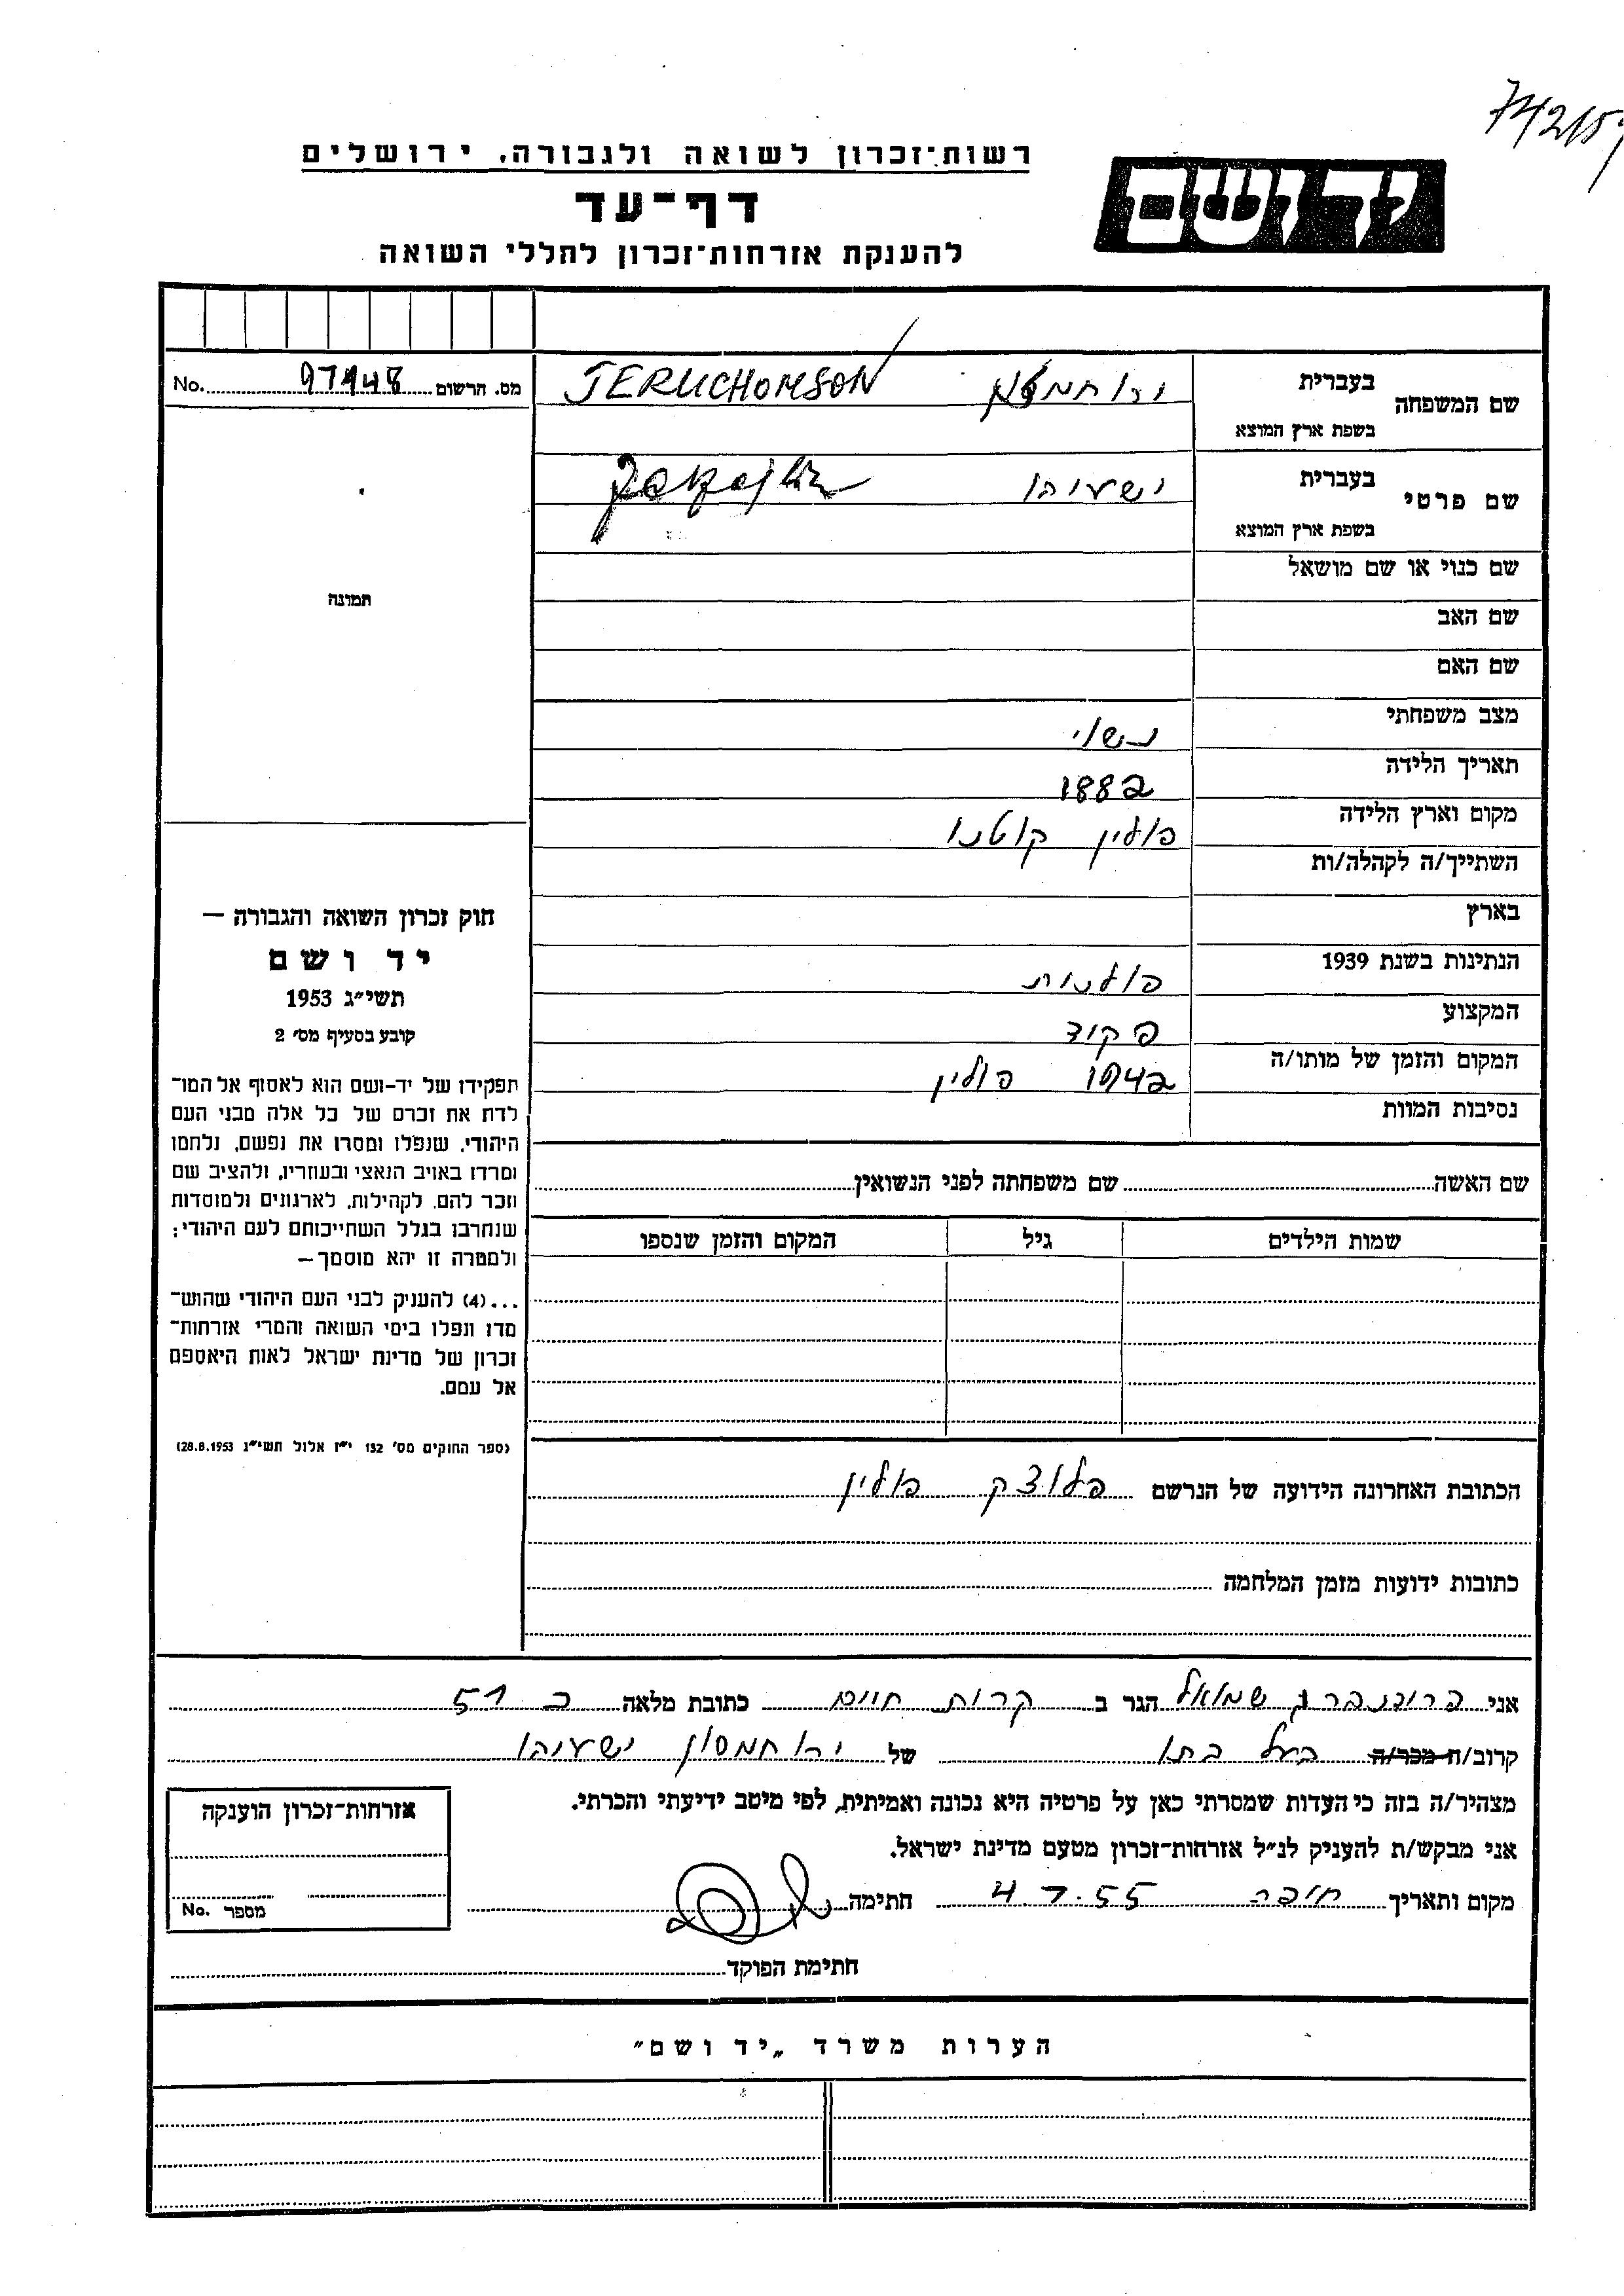 רשות־זכרון לשואה ולגבורה, ירושלים
יד ושם
דף־עד
להענקת אזרחות־זכרון לחללי השואה
שם המשפחה
בעברית
JERUCHOMSON
בשפת ארץ המוצא
מס. הרשום 97948 No.
שם פרטי
בעברית ישעיהו
בשפת ארץ המוצא
תמונה
שם כנוי או שם מושאל
שם האב
שם האם
מצב משפחתי נשוי
תאריך הלידה 1882
מקום וארץ הלידה פולין קוטנו
השתייך/ה לקהלה/ות
בארץ
הנתינות בשנת 1939 פולנית
המקצוע פקיד
המקום והזמן של מותו/ה 1942 פולין
נסיבות המוות
שם האשה שם משפחתה לפני הנשואין
שמות הילדים גיל המקום והזמן שנספו
חוק זכרון השואה והגבורה —
יד ושם
תשי״ג 1953
קובע בסעיף מס׳ 2
תפקידו של יד-ושם הוא לאסוף אל המו־
לדת את זכרם של כל אלה מבני העם
היהודי, שנפלו ומסרו את נפשם, נלחמו
ומרדו באויב הנאצי ובעוזריו, ולהציב שם
וזכר להם, לקהילות, לארגונים ולמוסדות
שנחרבו בגלל השתייכותם לעם היהודי;
ולמטרה זו יהא מוסמך —
...(4) להעניק לבני העם היהודי שהוש־
מדו ונפלו בימי השואה והמרי אזרחות־
זכרון של מדינת ישראל לאות היאספם
אל עמם.
(ספר החוקים מס׳ 132 י״ז אלול תשי״ג 28.8.1953)
הכתובת האחרונה הידועה של הנרשם פלוצק פולין
כתובות ידועות מזמן המלחמה
אני שמואל הגר ב קרית חיים כתובת מלאה ב 51
קרוב/ה מכר/ה בעל בתו של ירוחמסון ישעיהו
מצהיר/ה בזה כי העדות שמסרתי כאן על פרטיה היא נכונה ואמיתית, לפי מיטב ידיעתי והכרתי.
אני מבקש/ת להעניק לנ״ל אזרחות־זכרון מטעם מדינת ישראל.
מקום ותאריך חיפה 4.7.55 חתימה
חתימת הפוקד
אזרחות־זכרון הוענקה
מספר No.
הערות משרד „יד ושם״